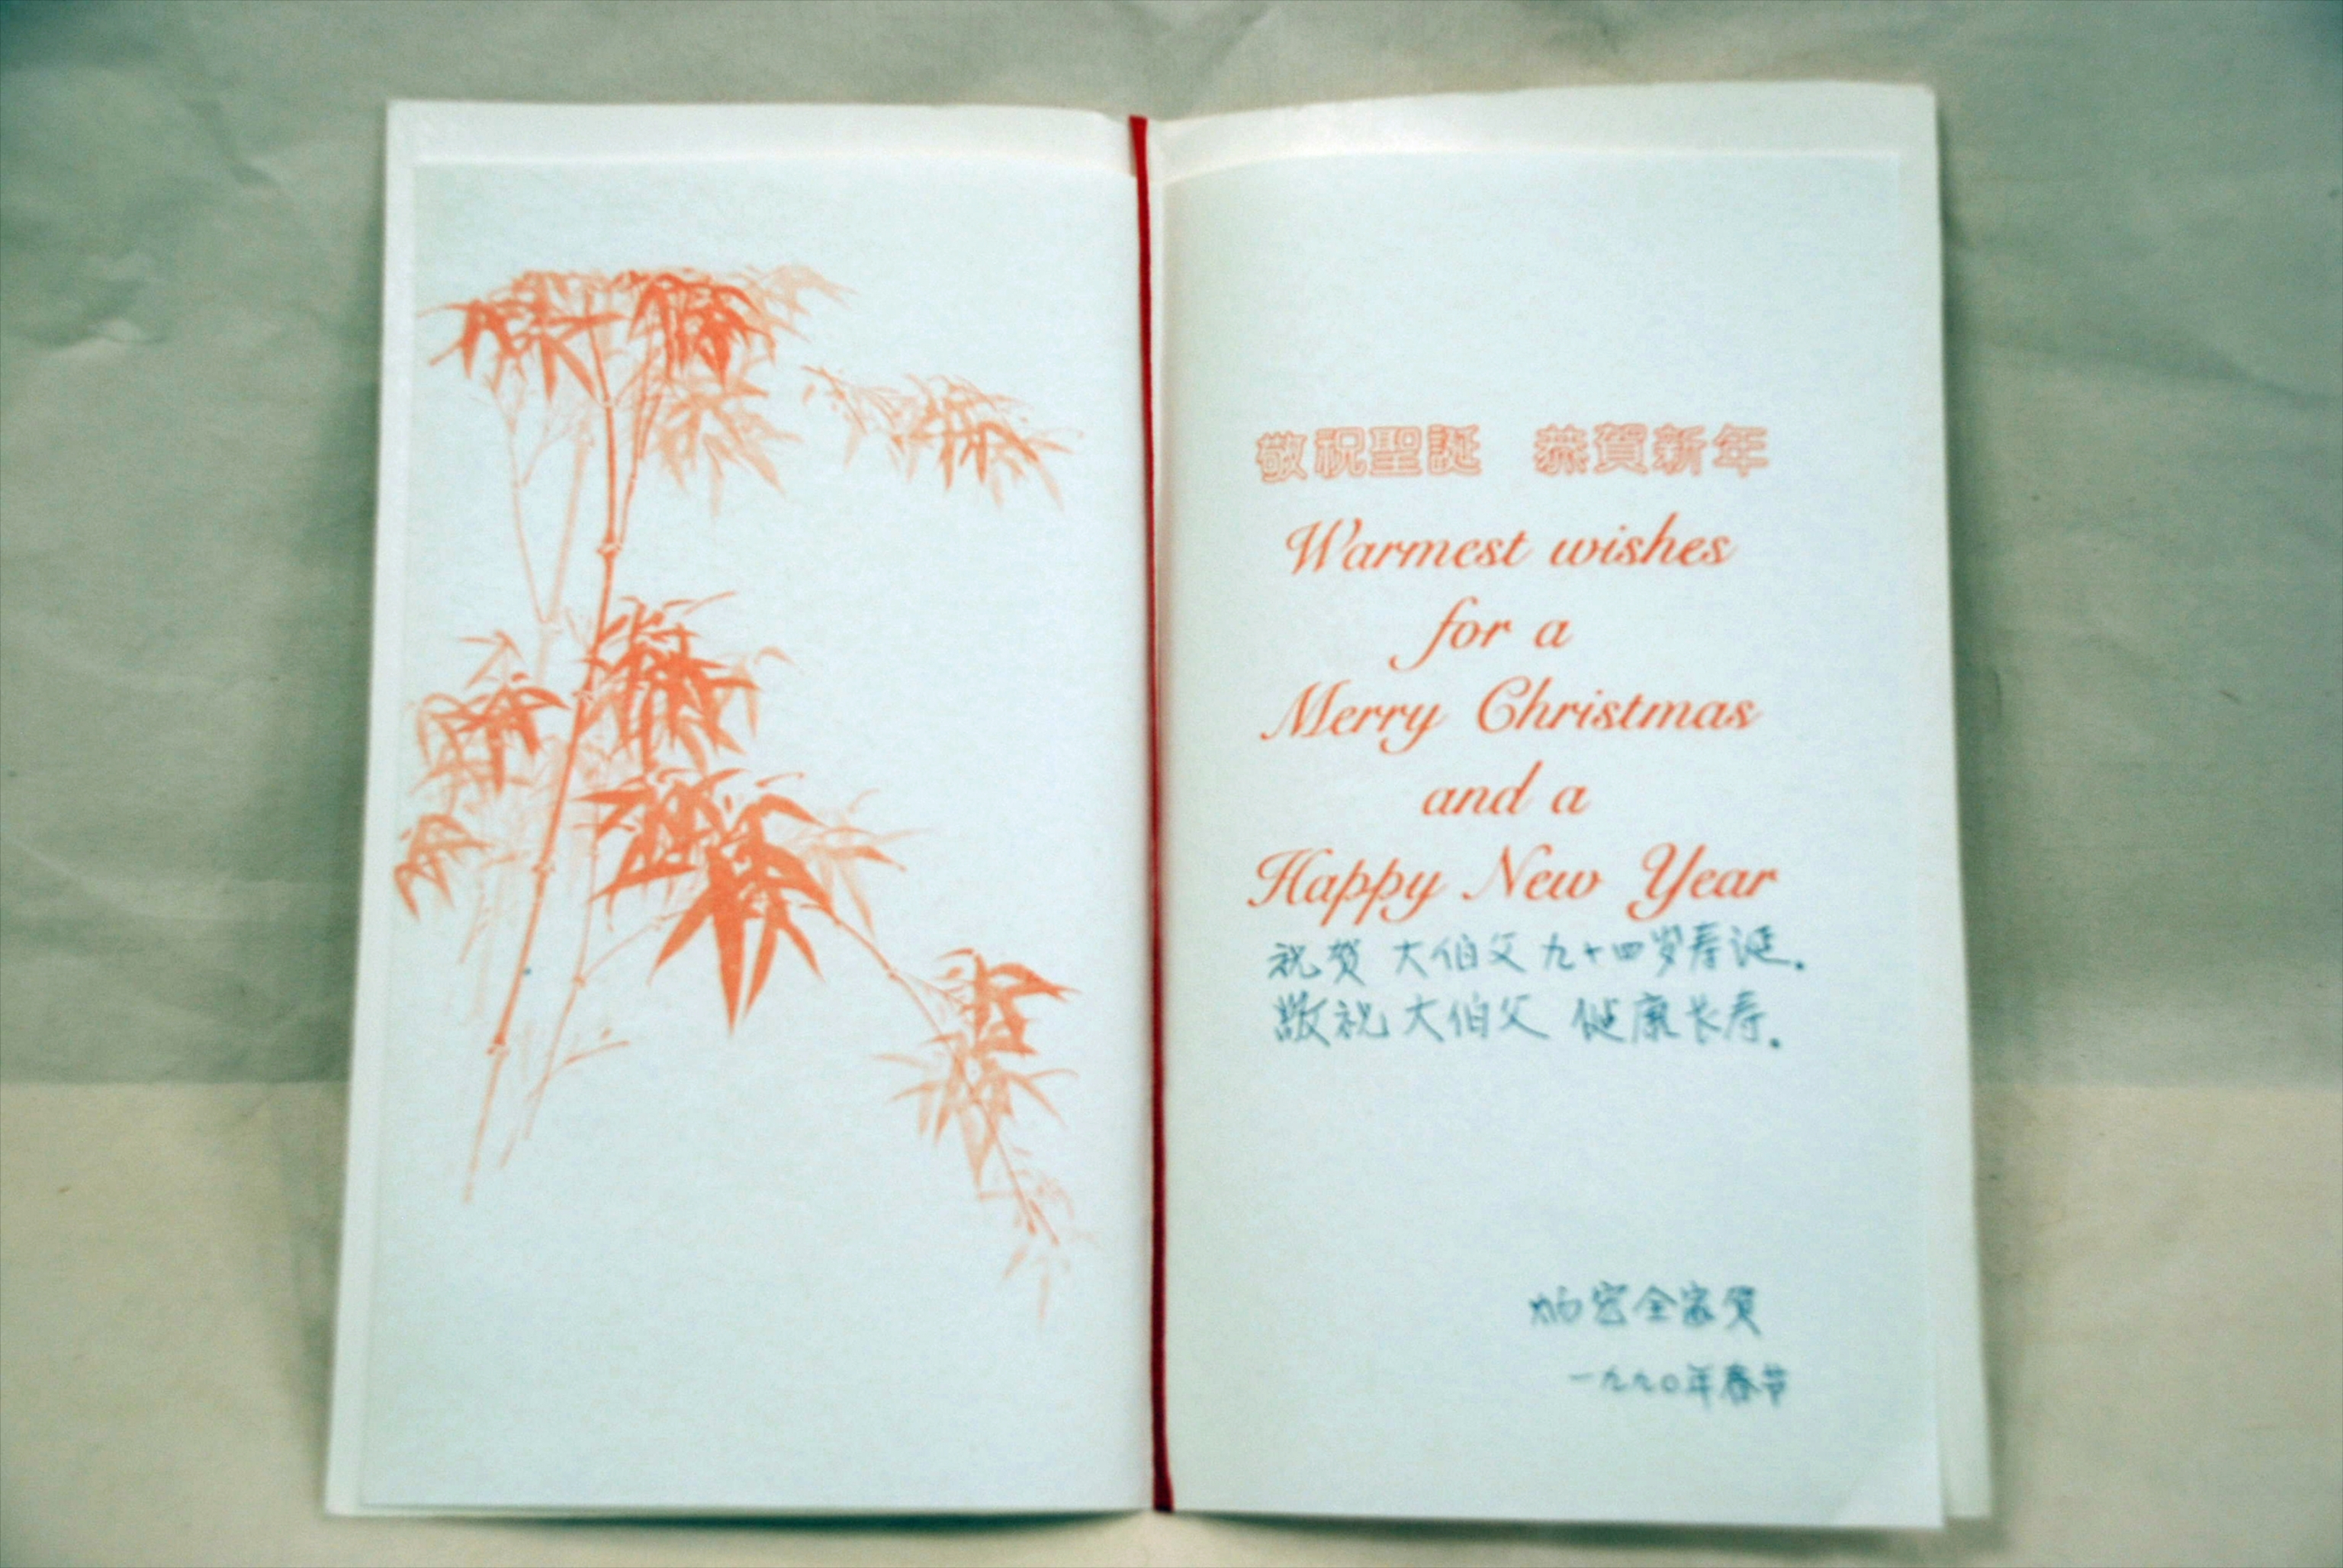 敬祝聖誕 恭賀新年
Warmest wishes
for a
Merry Christmas
and a
Happy New Year
祝贺 大伯父九十四岁寿诞.
敬祝大伯父 健康长寿.
宏全家贺
一九九〇年春节